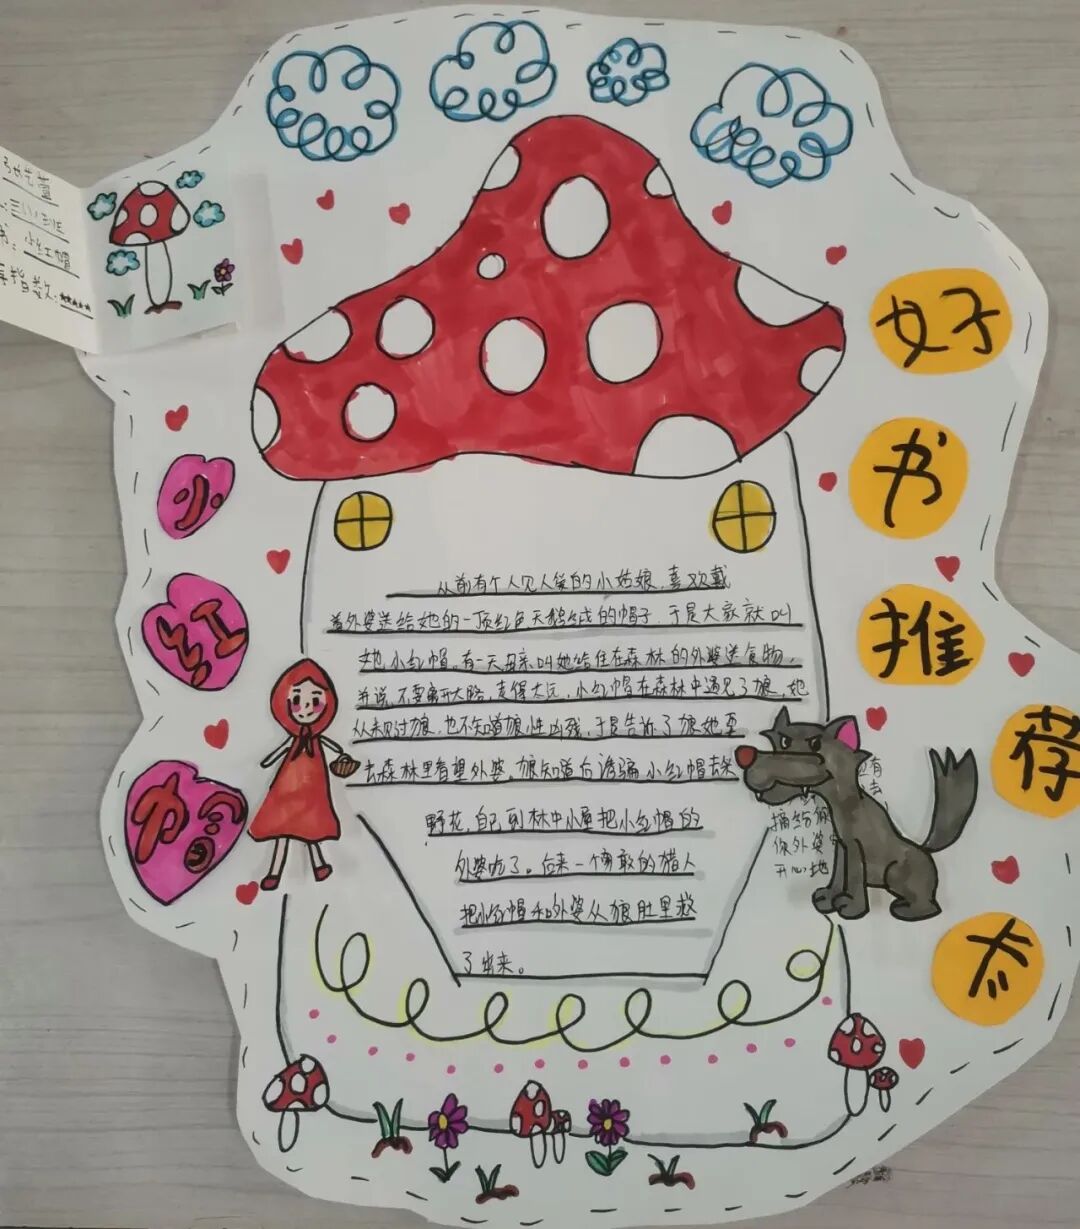 三（1）班
书：小红帽
荐指数：★★★★★
小
红
帽
好
书
推
荐
卡
从前有个人见人爱的小姑娘，喜欢戴
着外婆送给她的一顶红色天鹅绒成的帽子，于是大家就叫
她小红帽。有一天母亲叫她给住在森林的外婆送食物，
并说，不要离开大路，走得太远，小红帽在森林中遇见了狼，她
从未见过狼，也不知道狼性凶残，于是告诉了狼她要
去森林里看望外婆，狼知道后诱骗小红帽去采
野花，自己到林中小屋把小红帽的
外婆吃了。后来一个勇敢的猎人
把小红帽和外婆从狼肚里救
了出来。
还有
摘给你
你外婆
开心地